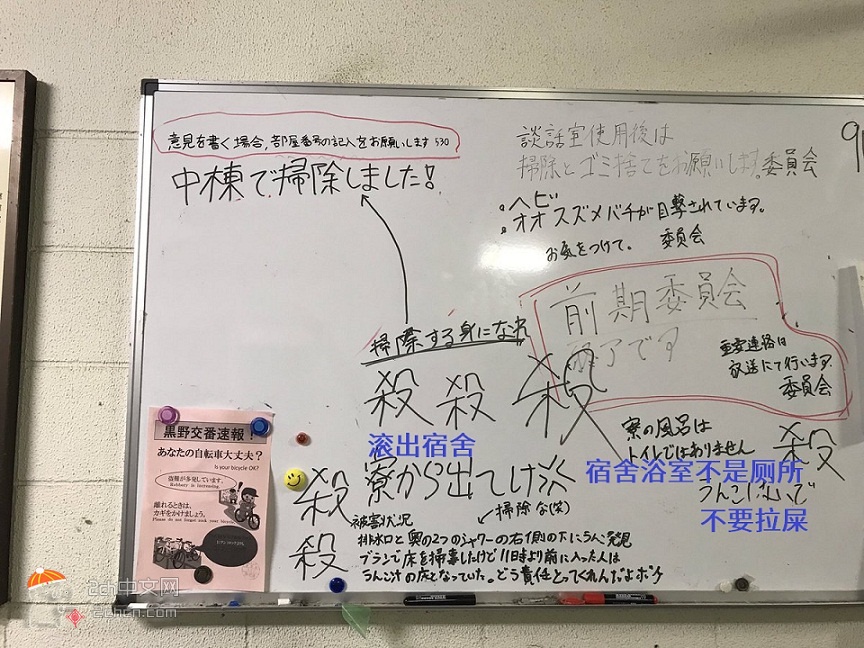 意見を書く場合、部屋番号の記入をお願いします 530
中棟で掃除しました!
談話室使用後は
掃除とゴミ捨てをお願いします。委員会
・ヘビ
・オオスズメバチが目撃されています。
お気をつけて。 委員会
前期委員会
終了です
重要連絡は
放送にて行います。
委員会
掃際する身になれ
殺 殺 殺
滚出宿舍
寮から出てけ
寮の風呂は
トイレではありません
殺
宿舍浴室不是厕所
うんこしないで
不要拉屎
殺
殺
掃除な(笑)
被害状況
排水口と奥の2つのシャワーの右側の下にうんこ発見
ブラシで床を掃事したけど11日時より前に入った人は
うんこ汁の床となっていた。どう責任とってくれんだよボケ
黒野交番速報!
あなたの自転車大丈夫?
Is your bicycle OK?
盗難が多発しています。
Robbery is increasing.
離れるときは、
カギをかけましょう。
Please do not forget lock your bicycle.
2ch中文网
2chcn.com